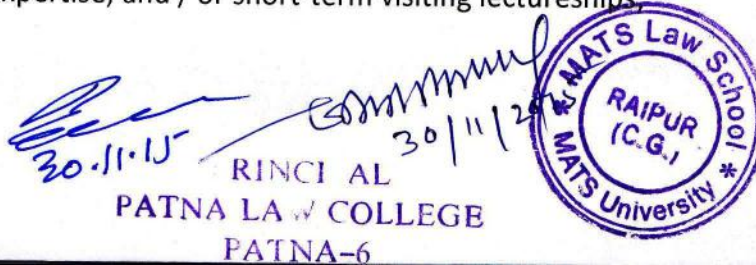 expertise, and / or short-term visiting lectureships,
30.11.15
30/11/20
RINCI AL
PATNA LAW COLLEGE
PATNA-6
MATS Law School
RAIPUR
(C.G.)
* MATS University *